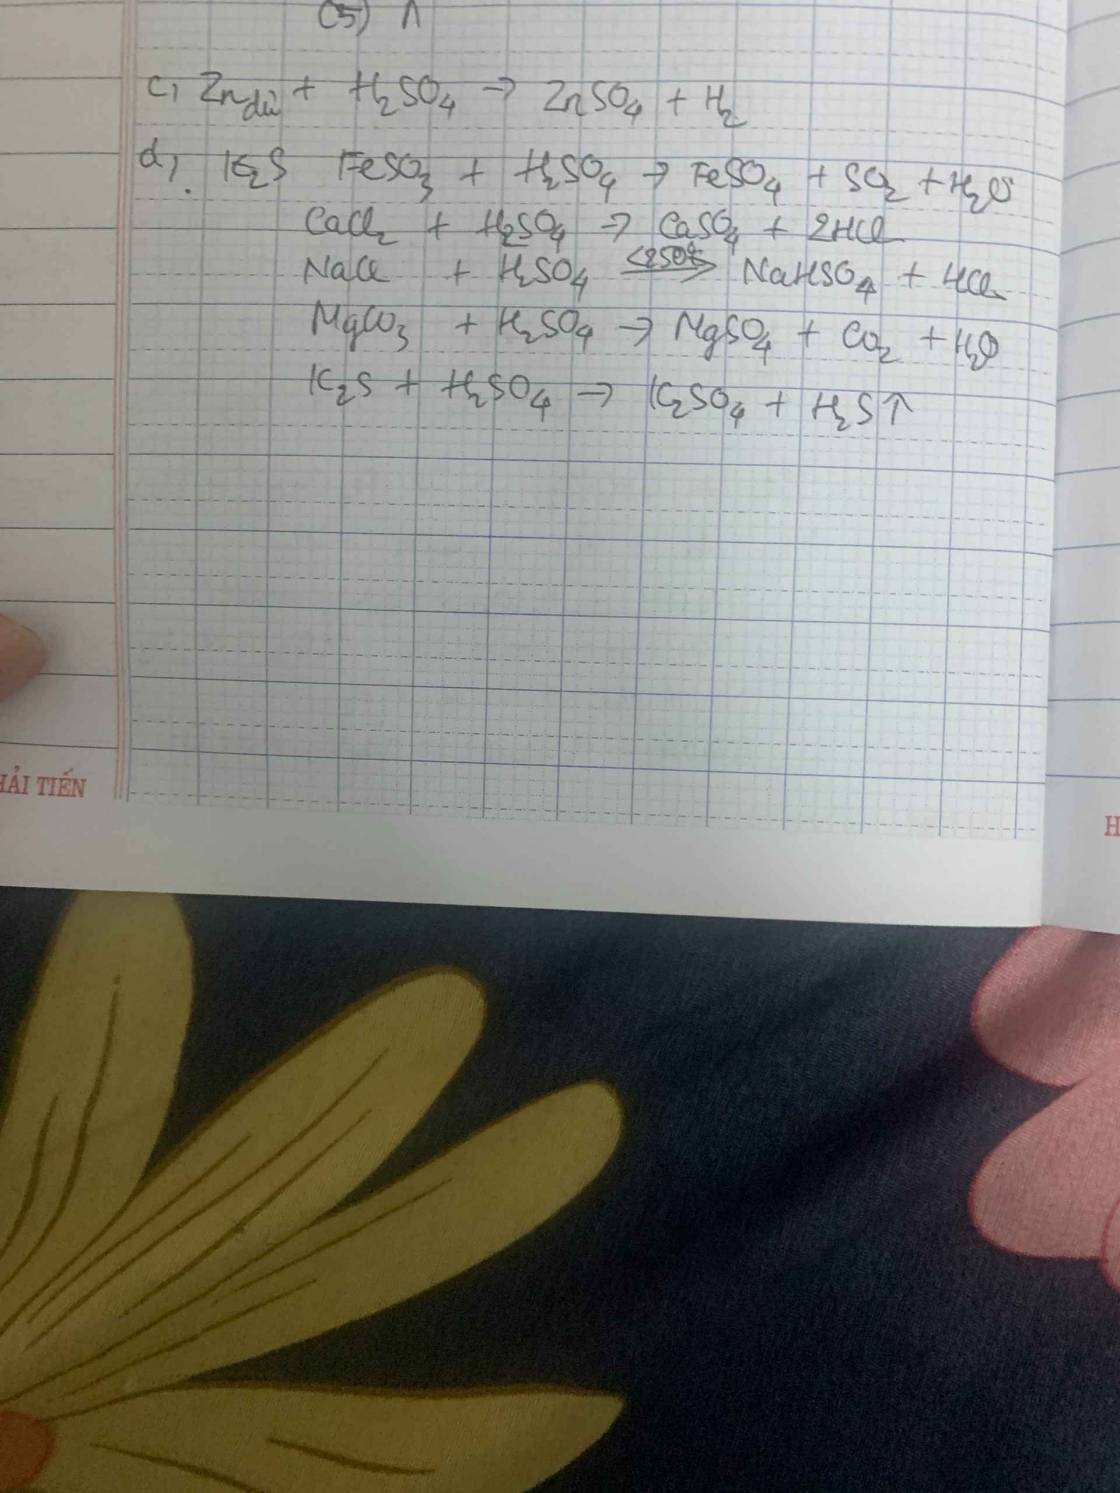 (5) A
c, Zn dư + H₂SO₄ → ZnSO₄ + H₂
d, K₂S FeSO₃ + H₂SO₄ → FeSO₄ + SO₂ + H₂O
CaCl₂ + H₂SO₄ → CaSO₄ + 2HCl
NaCl + H₂SO₄ <250° → NaHSO₄ + HCl
MgCO₃ + H₂SO₄ → MgSO₄ + CO₂ + H₂O
K₂S + H₂SO₄ → K₂SO₄ + H₂S↑
HẢI TIẾN
H